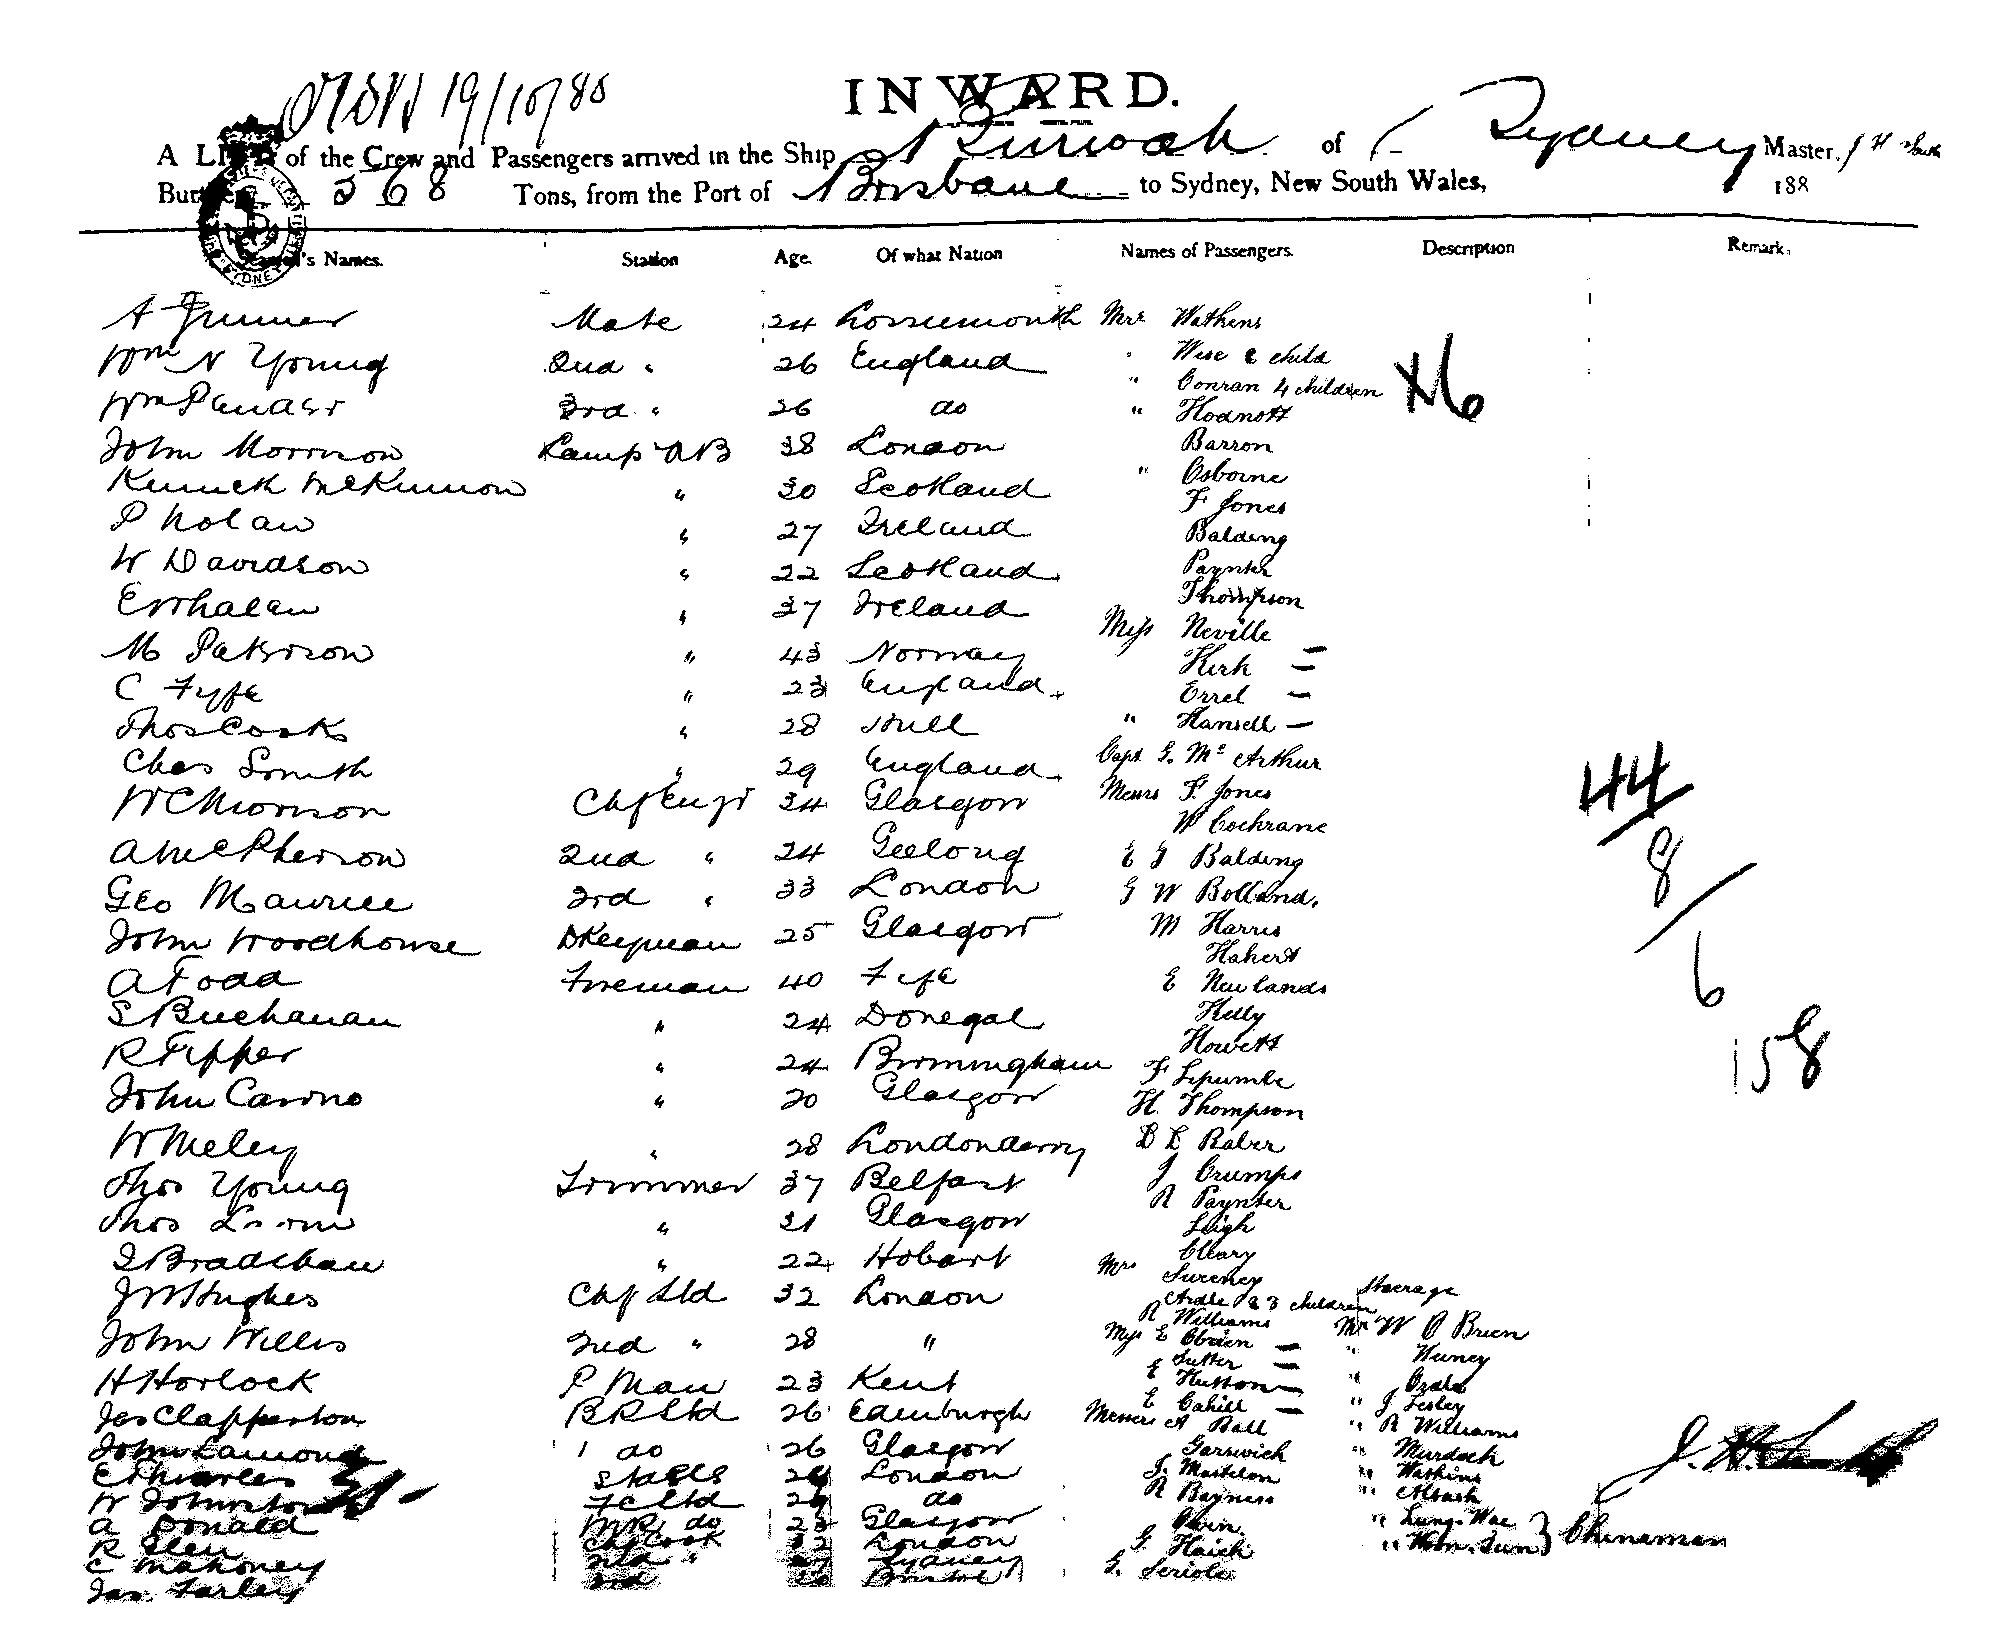 19/10/85
INWARD.
A of the Crew and Passengers arrived in the Ship of Sydney Master, J H
368 Tons, from the Port of Brisbane to Sydney, New South Wales, 188
Names. Station Age. Of what Nation Names of Passengers. Description Remark.
A Mate 24 Lossiemouth Mrs Wathens
Wm N Young 2nd " 26 England " Wise & child
" Conran 4 children
Wm Pender 3rd " 26 do " Hodnott
X6
John Morrison Lamp AB 38 London Barron
Kenneth McKinnon " 30 Scotland " Osborne
F Jones
P Nolan " 27 Ireland Balding
W Davidson " 22 Scotland Paynter
E Whalen " 37 Ireland Thompson
Miss Neville
M Paterson " 43 Norway Kirk —
C Fyfe " 23 England Errel —
Thos Cook " 28 Hull " Hansell —
Chas Smith " 29 England Capt G. Mc Arthur
W C Morrison Chf Engr 34 Glasgow Messrs F. Jones
W Cochrane
A McPherson 2nd " 24 Geelong E G Balding
Geo Maurice 3rd " 33 London G W Bolland.
John Woodhouse DKeyman 25 Glasgow M Harris
A Todd Fireman 40 Fife E Newlands
S Buchanan " 24 Donegal Kelly
R Tipper " 24 Birmingham Howett
John " 20 Glasgow H. Thompson
W Meley " 28 Londonderry Raber
J Crumps
Thos Young Trimmer 37 Belfast R Paynter
Thos " 31 Glasgow Leigh
Cleary
S Bradshaw " 22 Hobart Mrs Sweeney
J W Hughes Chf Std 32 London Ardle & 3 children Steerage
R Williams Mr W O Brien
John Willis 2nd " 28 " Miss E Obrien —
Sutter —
H Horlock P Man 23 Kent E Hutton —
E Cahill — " J Lesley
Jas Clapperton B R Std 26 Edinburgh Messrs A Ball " R Williams
John Lamond 1 do 26 Glasgow Garswich " Murdoch
E London " Watkins
W Johnston do R
A Donald do 23 Glasgow
R Glen Chf Cook 32 London G. } Chinaman
C Mahoney 2nd " Sydney
Jas Farley 3rd Bristol G.
44
8
6
158